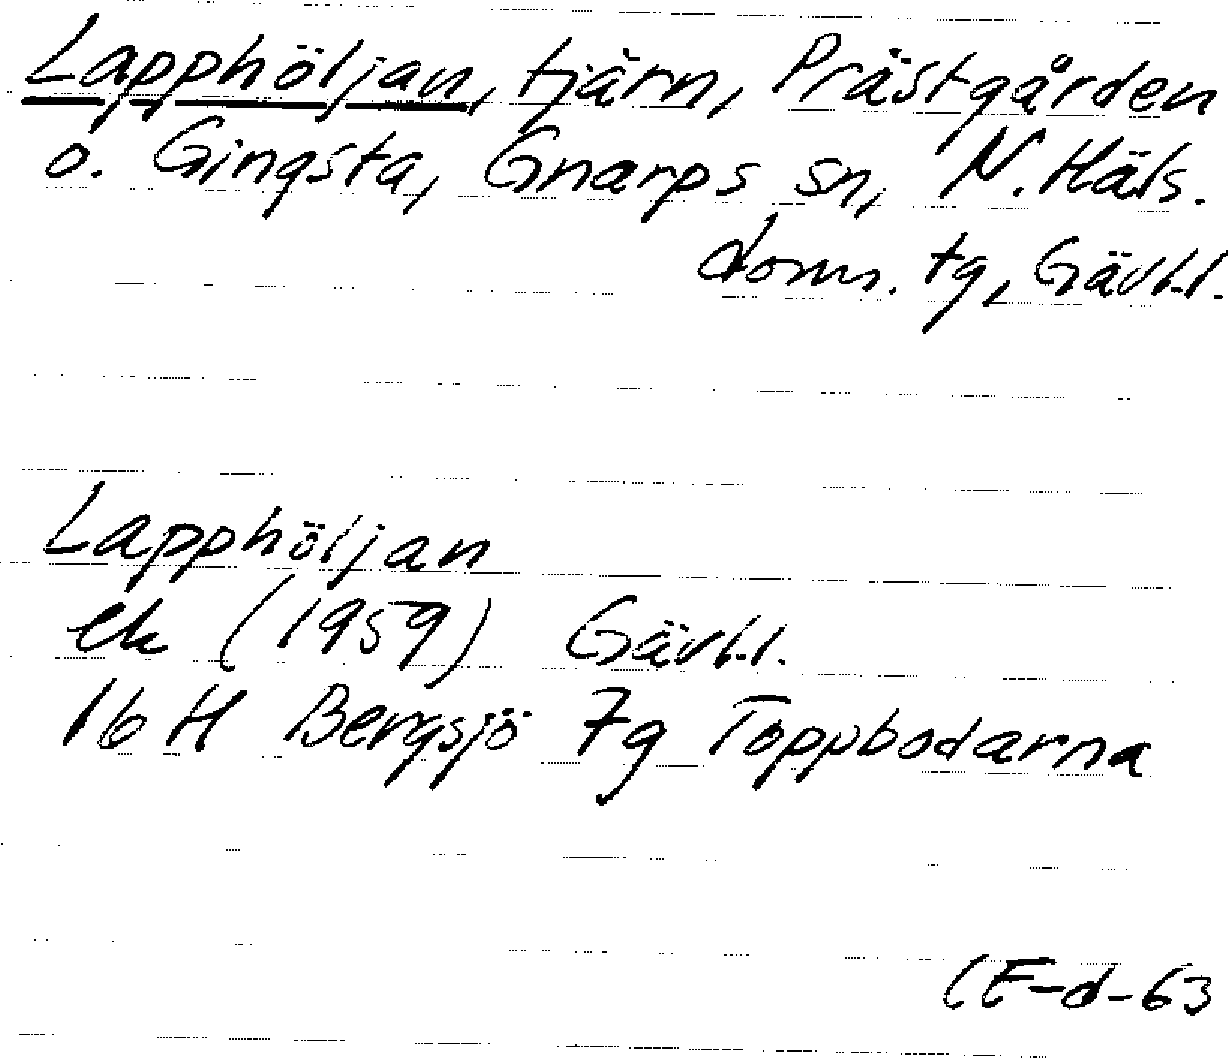 Lapphöljan, tjärn, Prästgården
o. Gingsta, Gnarps sn, N. Häls.
doms. tg, Gävl.l.
Lapphöljan
ek (1959) Gävl.l.
16 H Bergsjö 7g Toppbodarna
CE-d-63